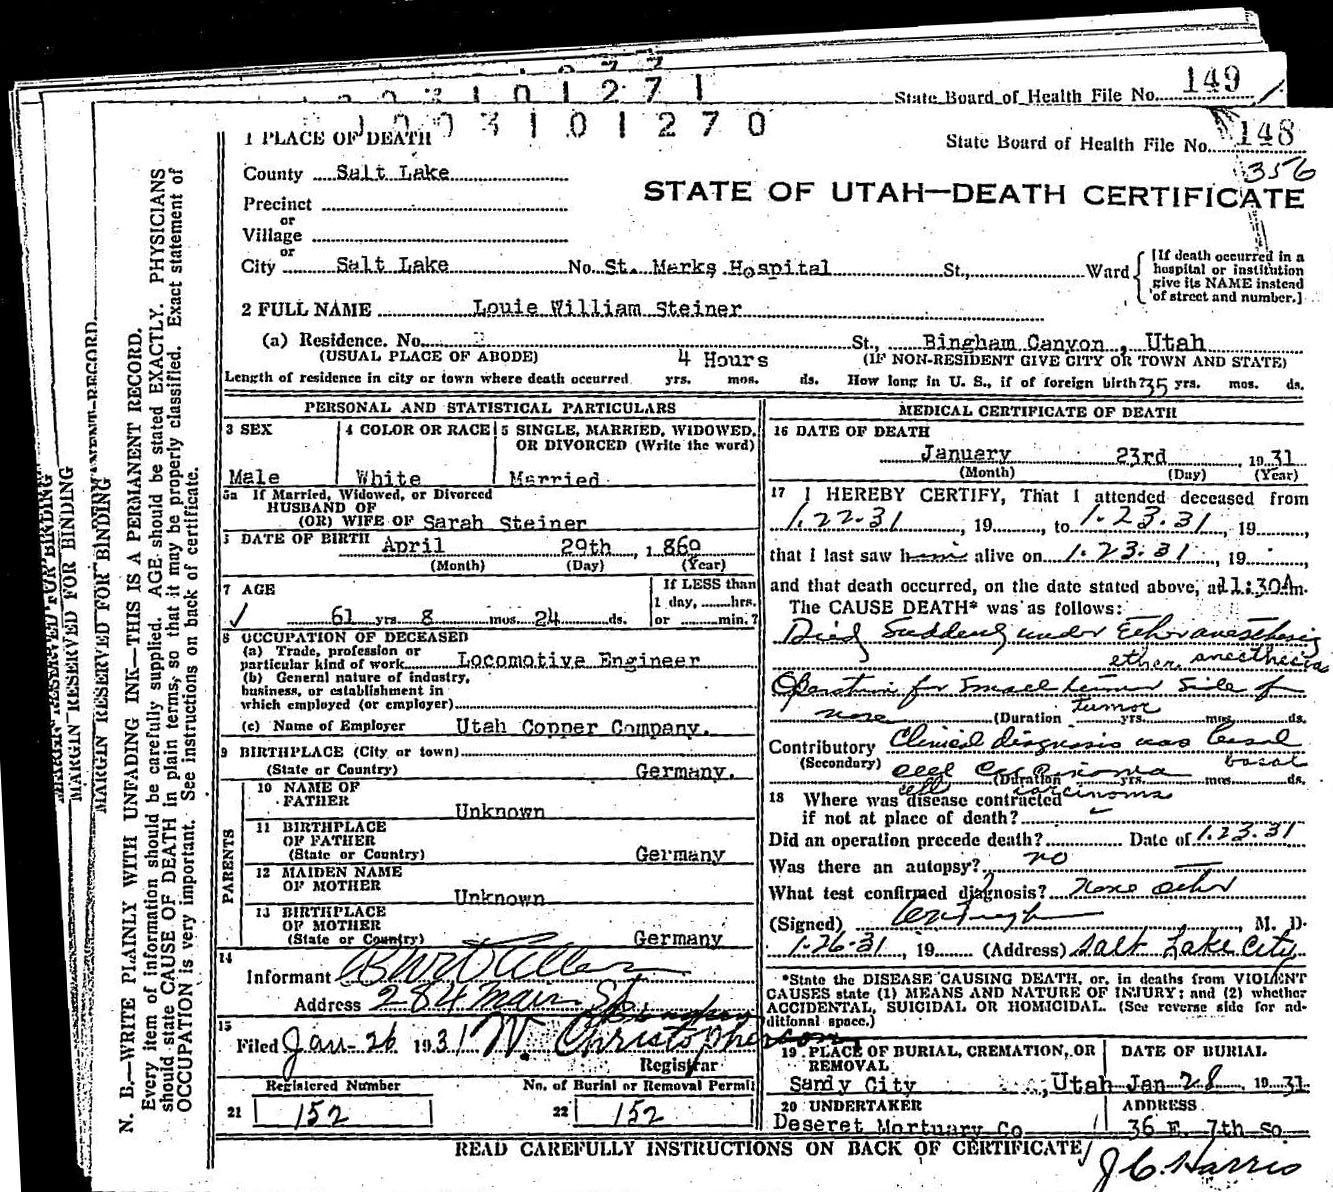 State Board of Health File No. 149
1003101271
1003101270
State Board of Health File No. 148
356
1 PLACE OF DEATH
County Salt Lake
STATE OF UTAH—DEATH CERTIFICATE
Precinct
or
Village
or
City Salt Lake No. St. Marks Hospital St., Ward
[If death occurred in a
hospital or institution
give its NAME instead
of street and number.]
2 FULL NAME Louie William Steiner
(a) Residence. No. St., Bingham Canyon, Utah
(USUAL PLACE OF ABODE) 4 Hours (IF NON-RESIDENT GIVE CITY OR TOWN AND STATE)
Length of residence in city or town where death occurred yrs. mos. ds. How long in U. S., if of foreign birth? 35 yrs. mos. ds.
PERSONAL AND STATISTICAL PARTICULARS
3 SEX 4 COLOR OR RACE 5 SINGLE, MARRIED, WIDOWED,
OR DIVORCED (Write the word)
Male White Married
5a If Married, Widowed, or Divorced
HUSBAND OF
(OR) WIFE OF Sarah Steiner
DATE OF BIRTH April 29th, 1869
(Month) (Day) (Year)
7 AGE If LESS than
1 day, hrs.
61 yrs. 8 mos. 24 ds. or min.?
8 OCCUPATION OF DECEASED
(a) Trade, profession or
particular kind of work Locomotive Engineer
(b) General nature of industry,
business, or establishment in
which employed (or employer)
(c) Name of Employer Utah Copper Company.
9 BIRTHPLACE (City or town)
(State or Country) Germany.
PARENTS
10 NAME OF
FATHER Unknown
11 BIRTHPLACE
OF FATHER
(State or Country) Germany
12 MAIDEN NAME
OF MOTHER Unknown
13 BIRTHPLACE
OF MOTHER
(State or Country) Germany
14
Informant
Address 284 Main St.
15
Filed Jan-26 1931 W. Christopherson
Registrar
Registered Number No. of Burial or Removal Permit
21 152 22 152
MEDICAL CERTIFICATE OF DEATH
16 DATE OF DEATH
January 23rd, 1931
(Month) (Day) (Year)
17 I HEREBY CERTIFY, That I attended deceased from
1.22.31, 19, to 1.23.31, 19,
that I last saw him alive on 1.23.31, 19,
and that death occurred, on the date stated above, at 11:30Am.
The CAUSE DEATH* was as follows:
Died Suddenly under Ether anesthesia
ether anesthesia
Operation for Small tumor Side of
tumor
nose (Duration yrs. mos. ds.
Contributory Clinical diagnosis was basal
(Secondary) basal
cell Carcinoma (Duration yrs. mos. ds.
cell carcinoma
18 Where was disease contracted
if not at place of death?
Did an operation precede death? Date of 1.23.31
Was there an autopsy? no
What test confirmed diagnosis? None other
(Signed) M. D.
1-26-31, 19 (Address) Salt Lake City
*State the DISEASE CAUSING DEATH, or, in deaths from VIOLENT
CAUSES state (1) MEANS AND NATURE OF INJURY; and (2) whether
ACCIDENTAL, SUICIDAL OR HOMICIDAL. (See reverse side for ad-
ditional space.)
19 PLACE OF BURIAL, CREMATION, OR DATE OF BURIAL
REMOVAL
Sandy City, Utah Jan 28, 1931
20 UNDERTAKER ADDRESS
Deseret Mortuary Co 36 E. 7th So
READ CAREFULLY INSTRUCTIONS ON BACK OF CERTIFICATE
J C Harris
MARGIN RESERVED FOR BINDING
MARGIN RESERVED FOR BINDING
MARGIN RESERVED FOR BINDING
N. B.—WRITE PLAINLY WITH UNFADING INK—THIS IS A PERMANENT RECORD.
Every item of information should be carefully supplied. AGE should be stated EXACTLY. PHYSICIANS
should state CAUSE OF DEATH in plain terms, so that it may be properly classified. Exact statement of
OCCUPATION is very important. See instructions on back of certificate.